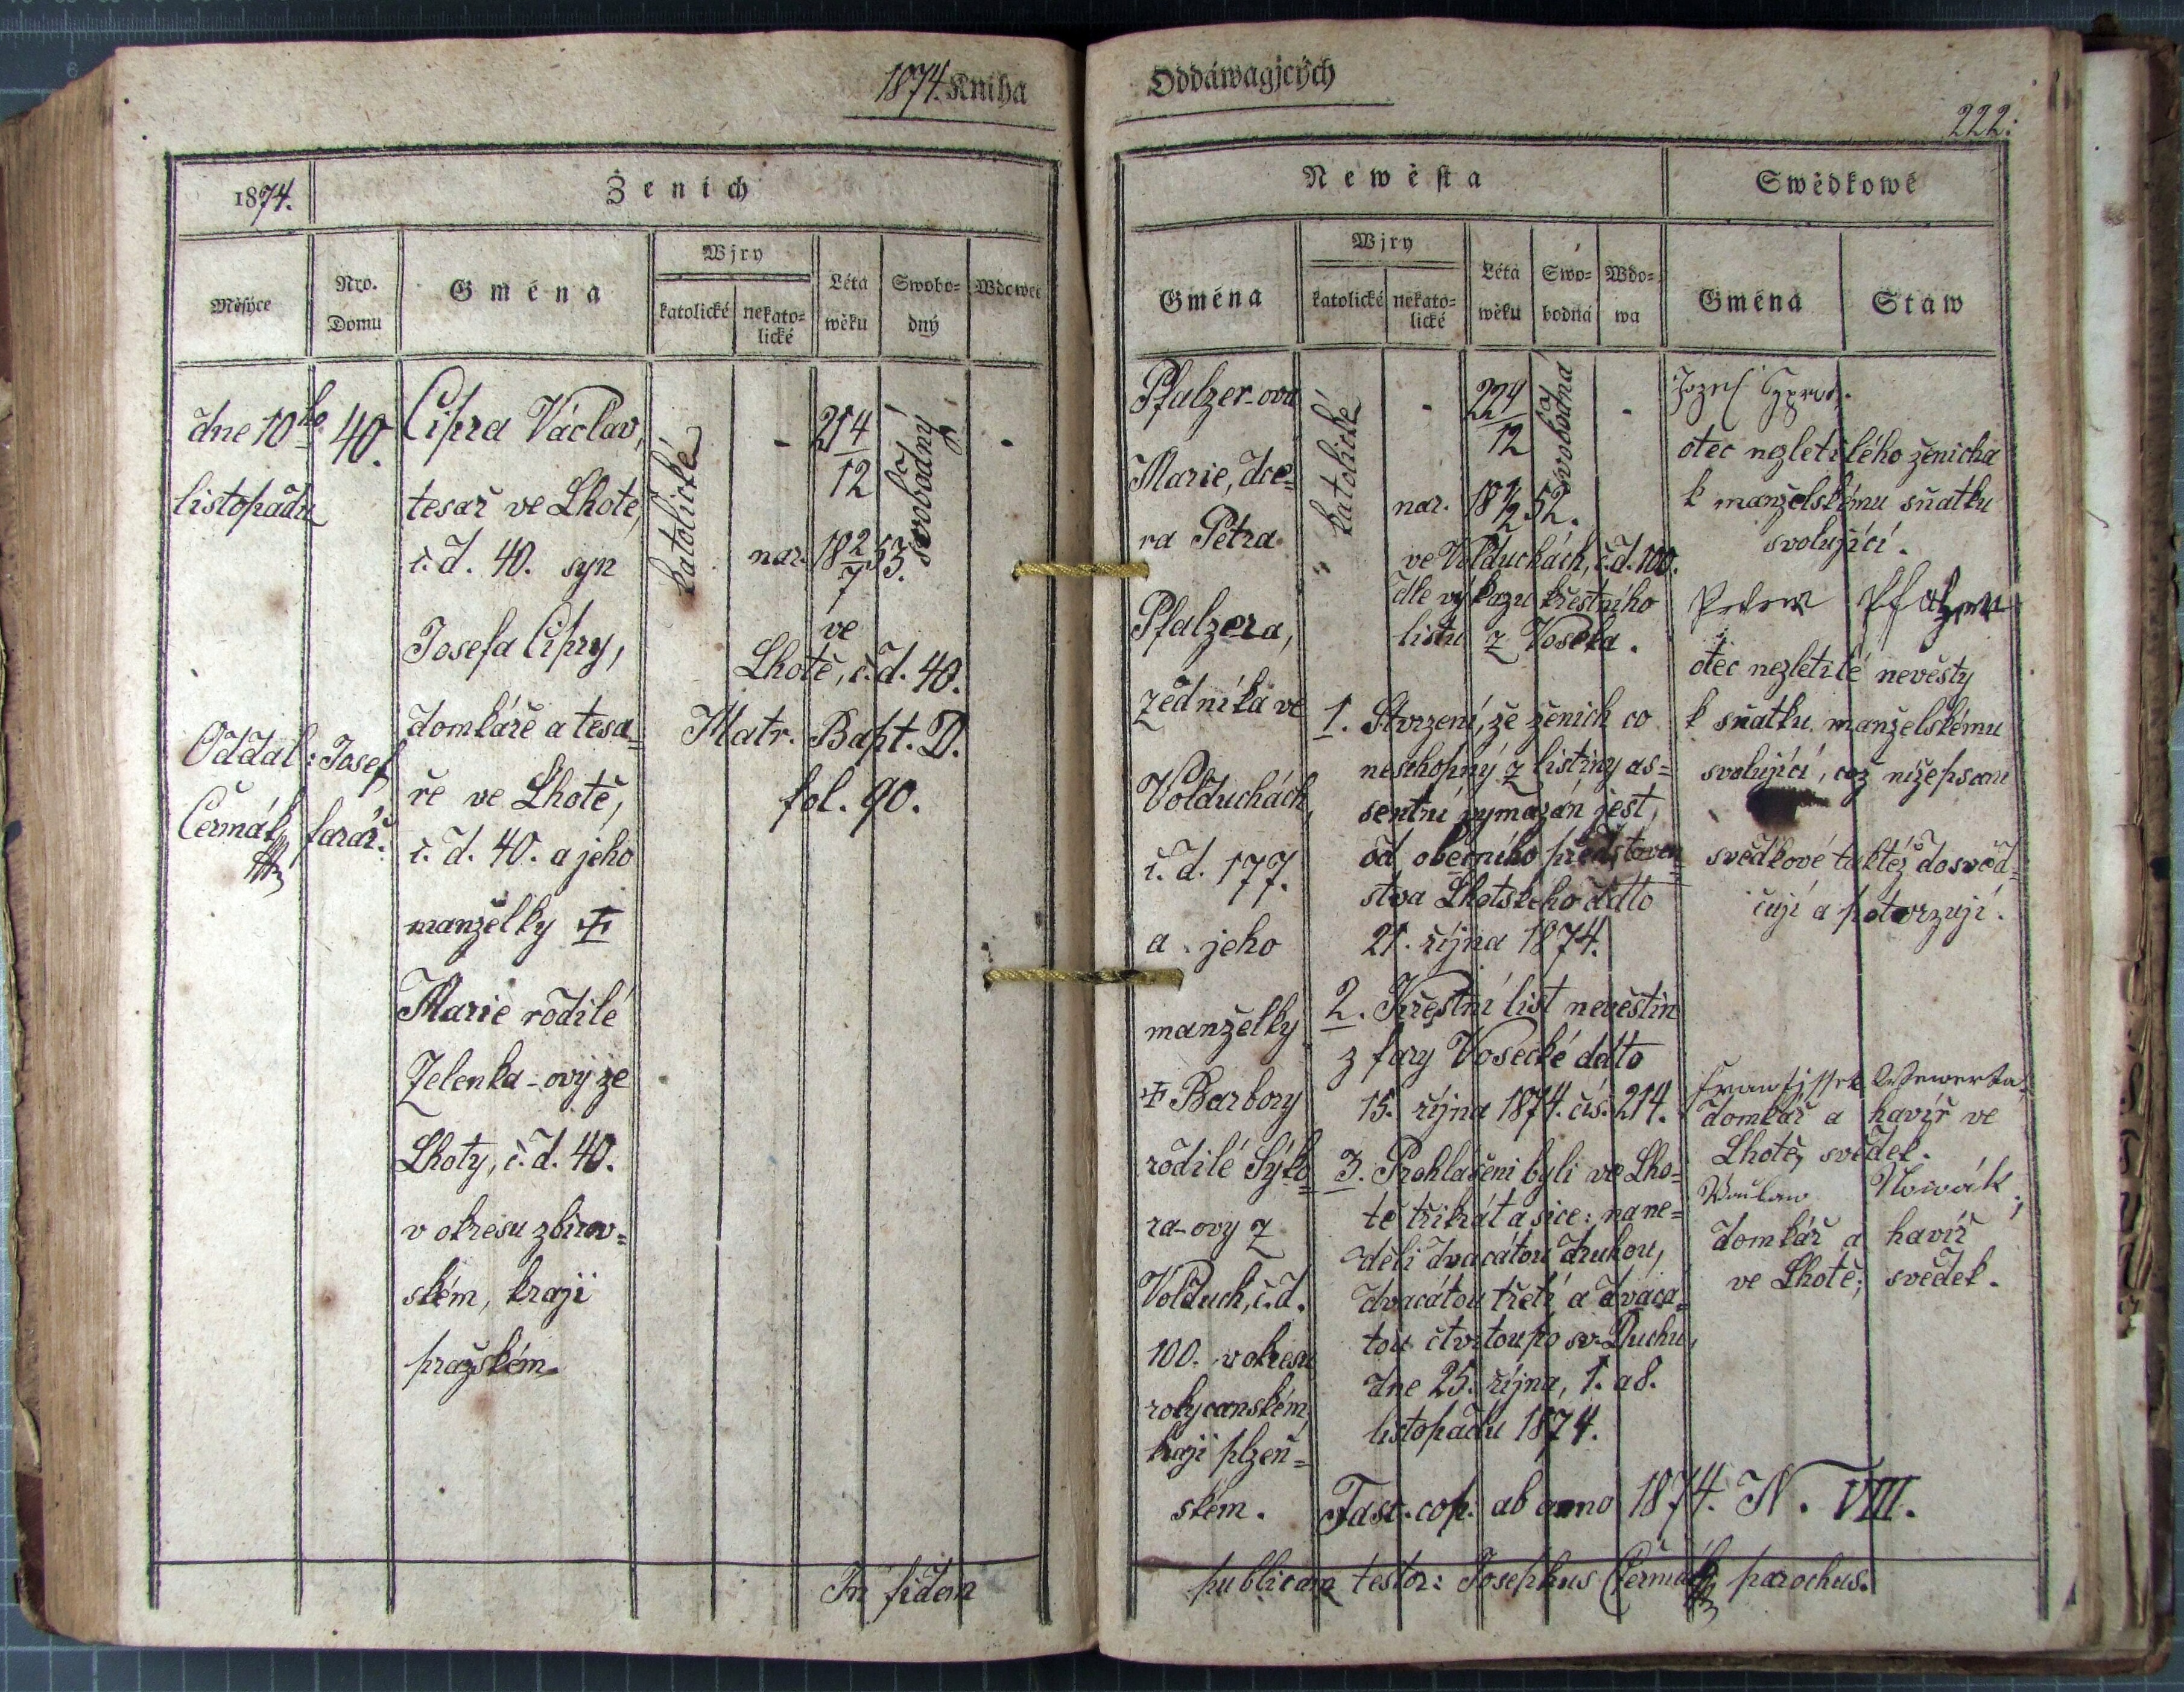 1874. Kniha
1874.
Ženich
Měsýce
Nro.
Domu
Gména
Wjry
katolické
nekato=
lické
Léta
wěku
Swobo=
dný
Wdowec
dne 10ho
listopadu
40.
Cipra Václav,
tesař ve Lhotě,
č. d. 40. syn
Josefa Cipry,
domkáře a tesa=
ře ve Lhotě,
č. d. 40. a jeho
manželky
Marie rodilé
Zelenka-ovy ze
Lhoty, č. d. 40.
v okresu zbirov=
ském, kraji
pražském.
katolické
-
21 4/12
svobodný
-
nar. 18 2/7 53.
ve
Lhotě, č. d. 40.
Matr. Bapt. D.
fol. 90.
Oddal: Josef
Čermák, farář.
In fidem
Oddáwagjcých
222.
Newěsta
Swědkowé
Gména
Wjry
katolické
nekato=
lické
Léta
wěku
Swo=
bodná
Wdo=
wa
Gména
Staw
Pfalzer-ova
Marie, dce=
ra Petra
Pfalzera,
zedníka ve
Volduchách,
č. d. 177.
a jeho
manželky
Barbory
rodilé Sýko=
ra-ovy z
Volduch, č. d.
100. v okresu
rokycanském,
kraji plzeň=
ském.
katolické
-
22 4/12
svobodná
-
nar.
52.
ve Volduchách, č. d. 100.
dle výkazu křestního
listu z Voseka.
1. Stvrzení, že ženich co
neschopný z listiny as=
sentní vymazán jest,
od obecního představen=
stva Lhotského ddto
21. října 1874.
2. Křestní list nevěstin
z fary Vosecké ddto
15. října 1874. čís. 214.
3. Prohlášeni byli ve Lho=
tě třikrát a sice: na ne=
děli dvacátou druhou,
dvacátou třetí a dvacá=
tou čtvrtou po sv. Duchu,
dne 25. října, 1. a 8.
listopadu 1874.
Fasc. cop. ab anno 1874. N. VIII.
Jozef
otec nezletilého ženicha
k manželskému sňatku
svolující.
Peter Pfalzer
otec nezletilé nevěsty
k sňatku manželskému
svolující, což nížepsaní
svědkové taktéž dosvěd=
čují a potvrzují.
domkář a havíř ve
Lhotě, svědek.
Waclaw Nowák,
domkář a havíř
ve Lhotě, svědek.
publicam testor: Josephus Čermák, parochus.